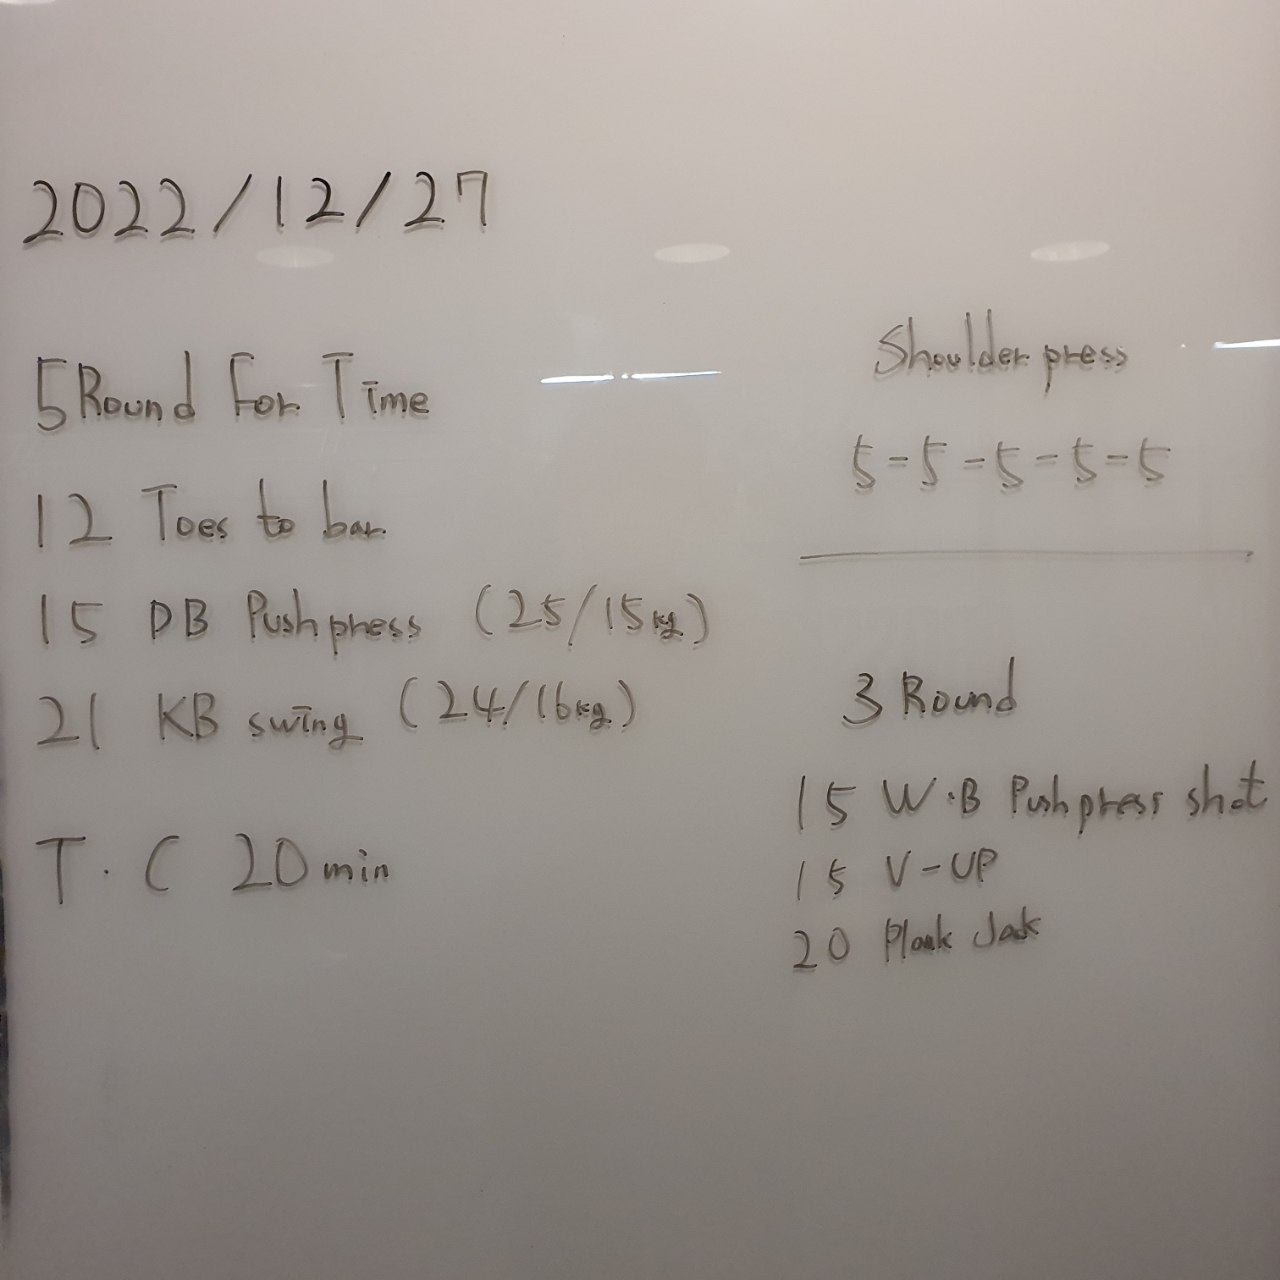 2022/12/27
5 Round For Time
12 Toes to bar
15 DB Push press (25/15kg)
21 KB swing (24/16kg)
T.C 20min
Shoulder press
5-5-5-5-5
3 Round
15 W.B Push press shot
15 V-UP
20 Plank Jack